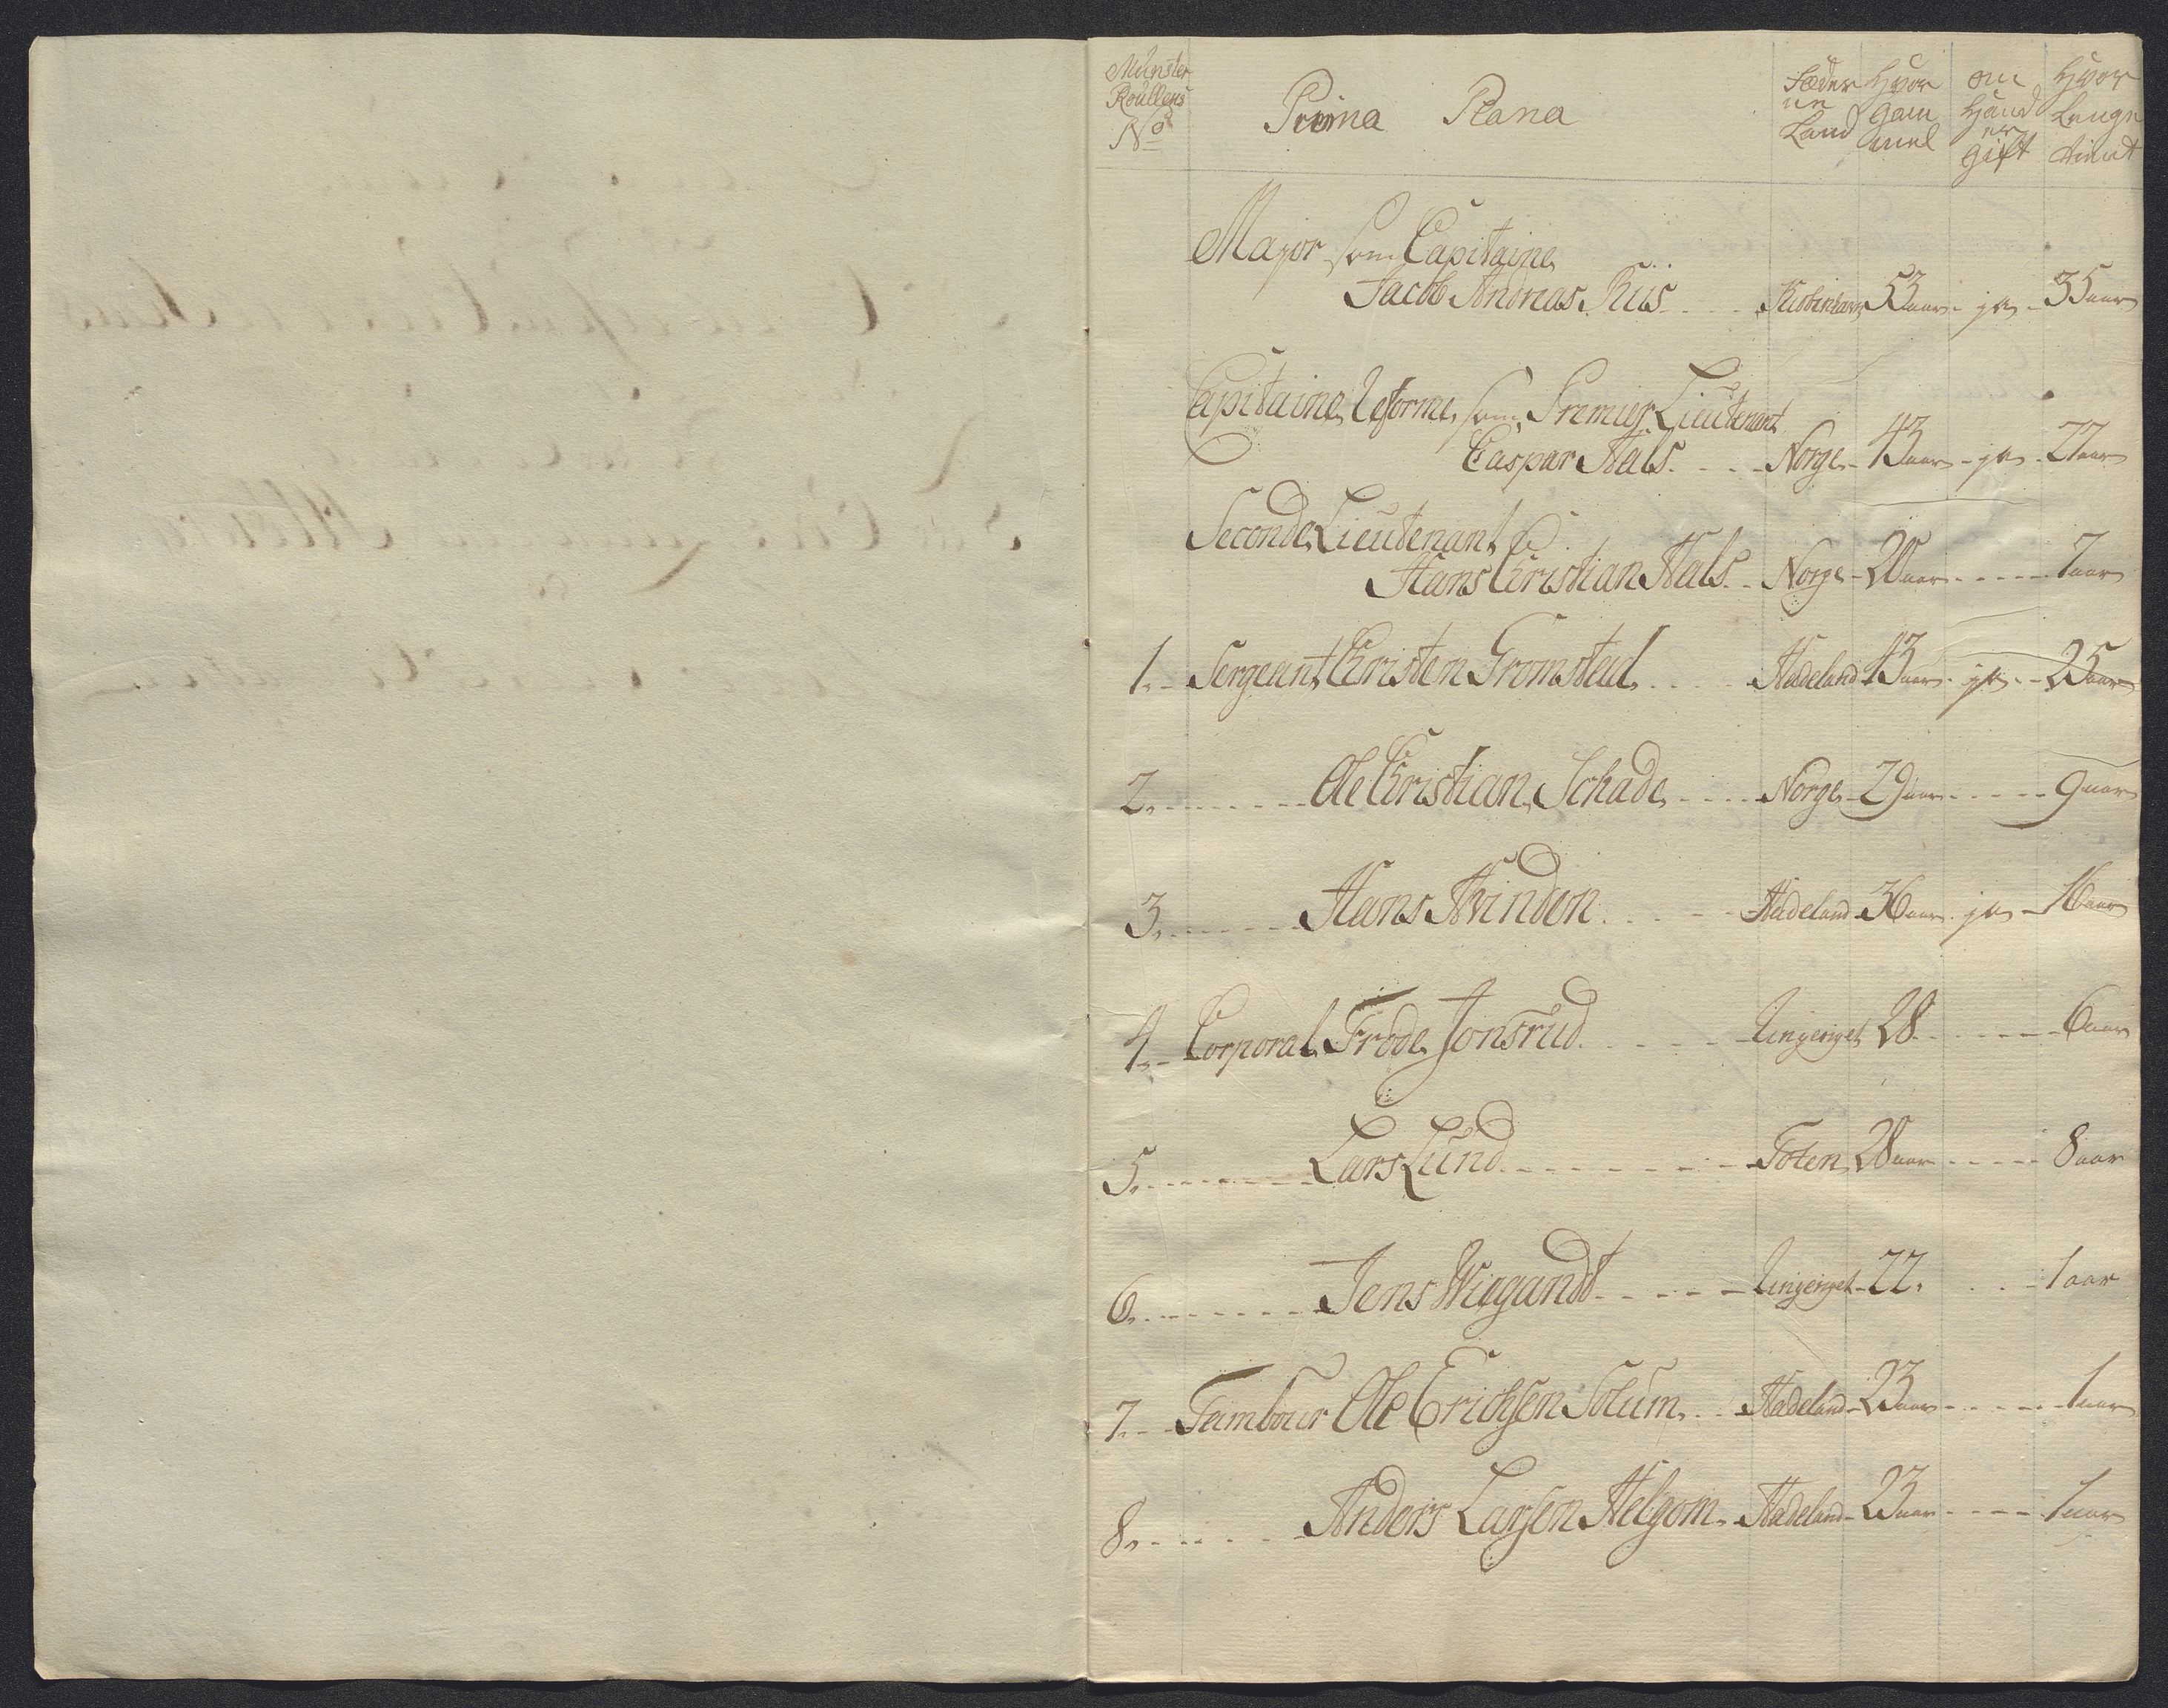 Munster Roullens No
Prima Plana
Fæderne Land
Hvor gammel
om Hand er gift
Hvor Lenge tient
Major som Capitaine
Jacob Andreas Riis 53 aar ja 35 aar
Capitaine Reforme som Premier Lieutenant
Caspar Hals Norge 43 aar ja 27 aar
Seconde Lieutenant
Hans Christian Hals Norge 20 aar 7 aar
1. Sergeant Christen Gromstad Hadeland 43 aar ja 25 aar
2. Ole Christian Schade Norge 29 aar 9 aar
3. Hans Hvinden Hadeland 36 aar ja 16 aar
4. Corporal Frode Jonsrud Ringeriget 28 6 aar
5. Lars Lund Toten 28 aar 8 aar
6. Jens Wiegandt Ringeriget 22. 1 aar
7. Tambour Ole Erichsen Solum Hadeland 23 aar 1 aar
8. Anders Larsen Helgom Hadeland 23 aar 1 aar